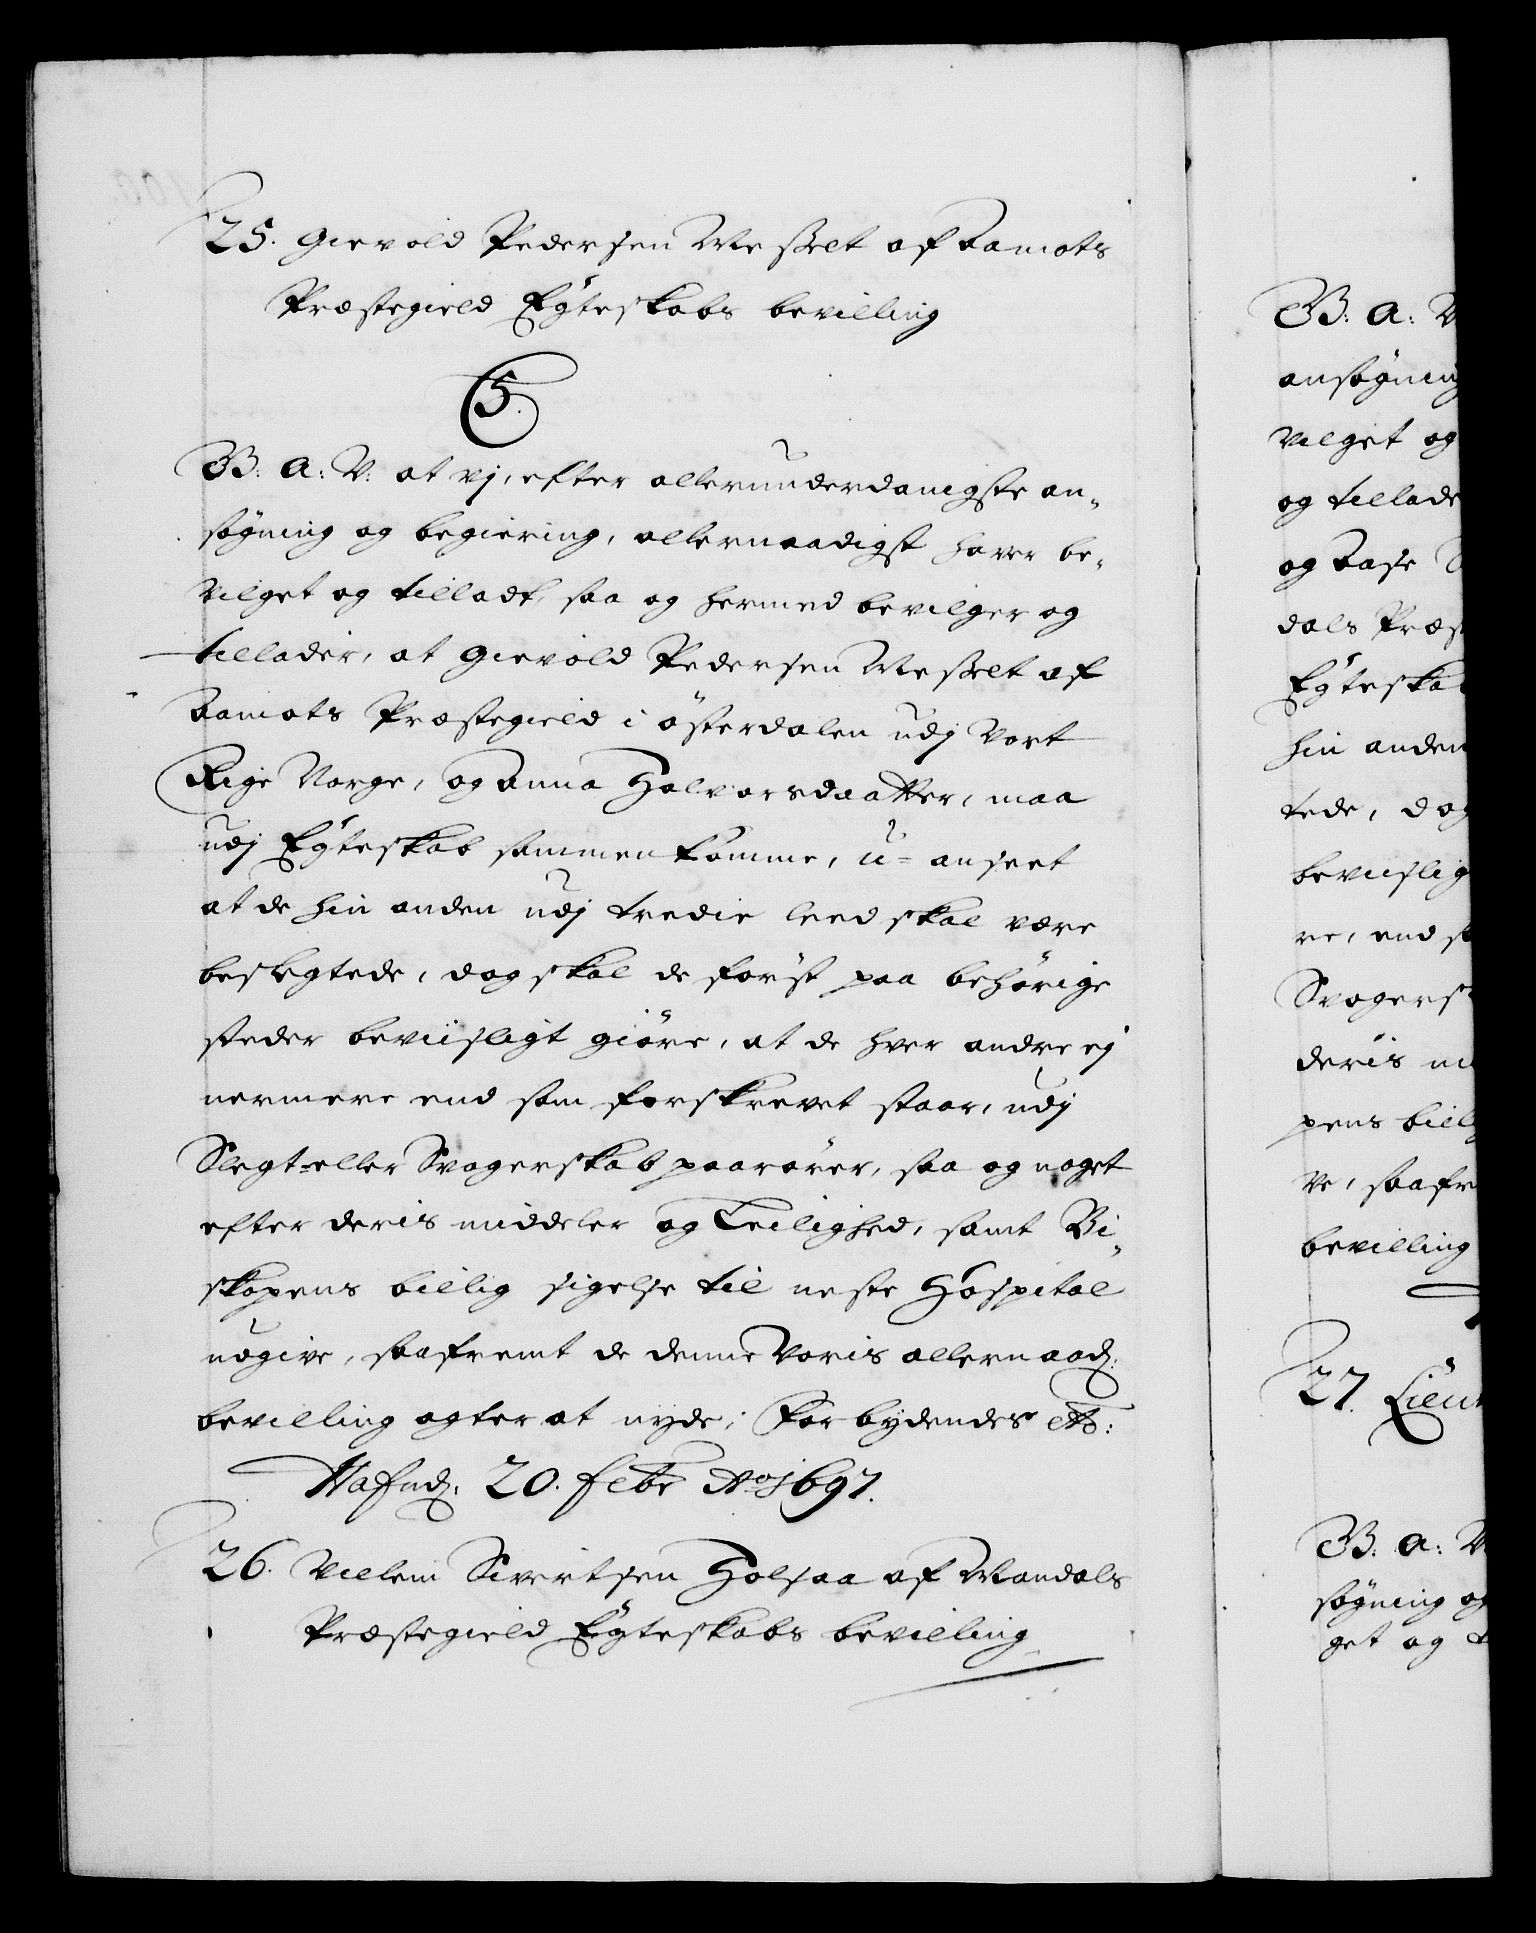 25. Giervold Pedersen Messelt af Aamots
Præstegield Egteskabs bevilling
C5.
B: A: V: at vj, efter allerunderdanigste an„
søgning og begiering, allernaadigst haver be„
vilget og tilladt, saa og hermed bevilger og
tillader, at Giervold Pedersen Messelt af
Aamots Præstegield i Österdalen udj Vort
Rige Norge, og Anna Halvorsdaatter, maa
udj Egteskab sammenkomme, u-anseet
at de hin anden udj tredie leed skal være
beslegtede, dog skal de först paa behörige
steder beviisligt giöre, at de hver andre ej
nermere end som forskrevet staar, udj
Slegt-eller Svogerskab paarörer, saa og noget
efter deris middeler og Leilighed, samt Bi„
skopens billig sigelse til neste Hospital
udgive, saafremt de denne Voris allernaad:
bevilling agter at nyde; Forbydendes etc:
Hafnd: 20. Febr Ao 1697.
26. Villem Sivertsen Holsaa af Mandals
Præstegield Egteskabs bevilling
B: A: V
ansøgning
vilget og
og tillade
og Aase
dals Præst
Egteskab
hin anden
tede, dog
beviislig
re, end s
Svogersk
deris mi
pens bill
ve, saafre
bevilling
27. Lieut
B: A: V
søgning og
get og